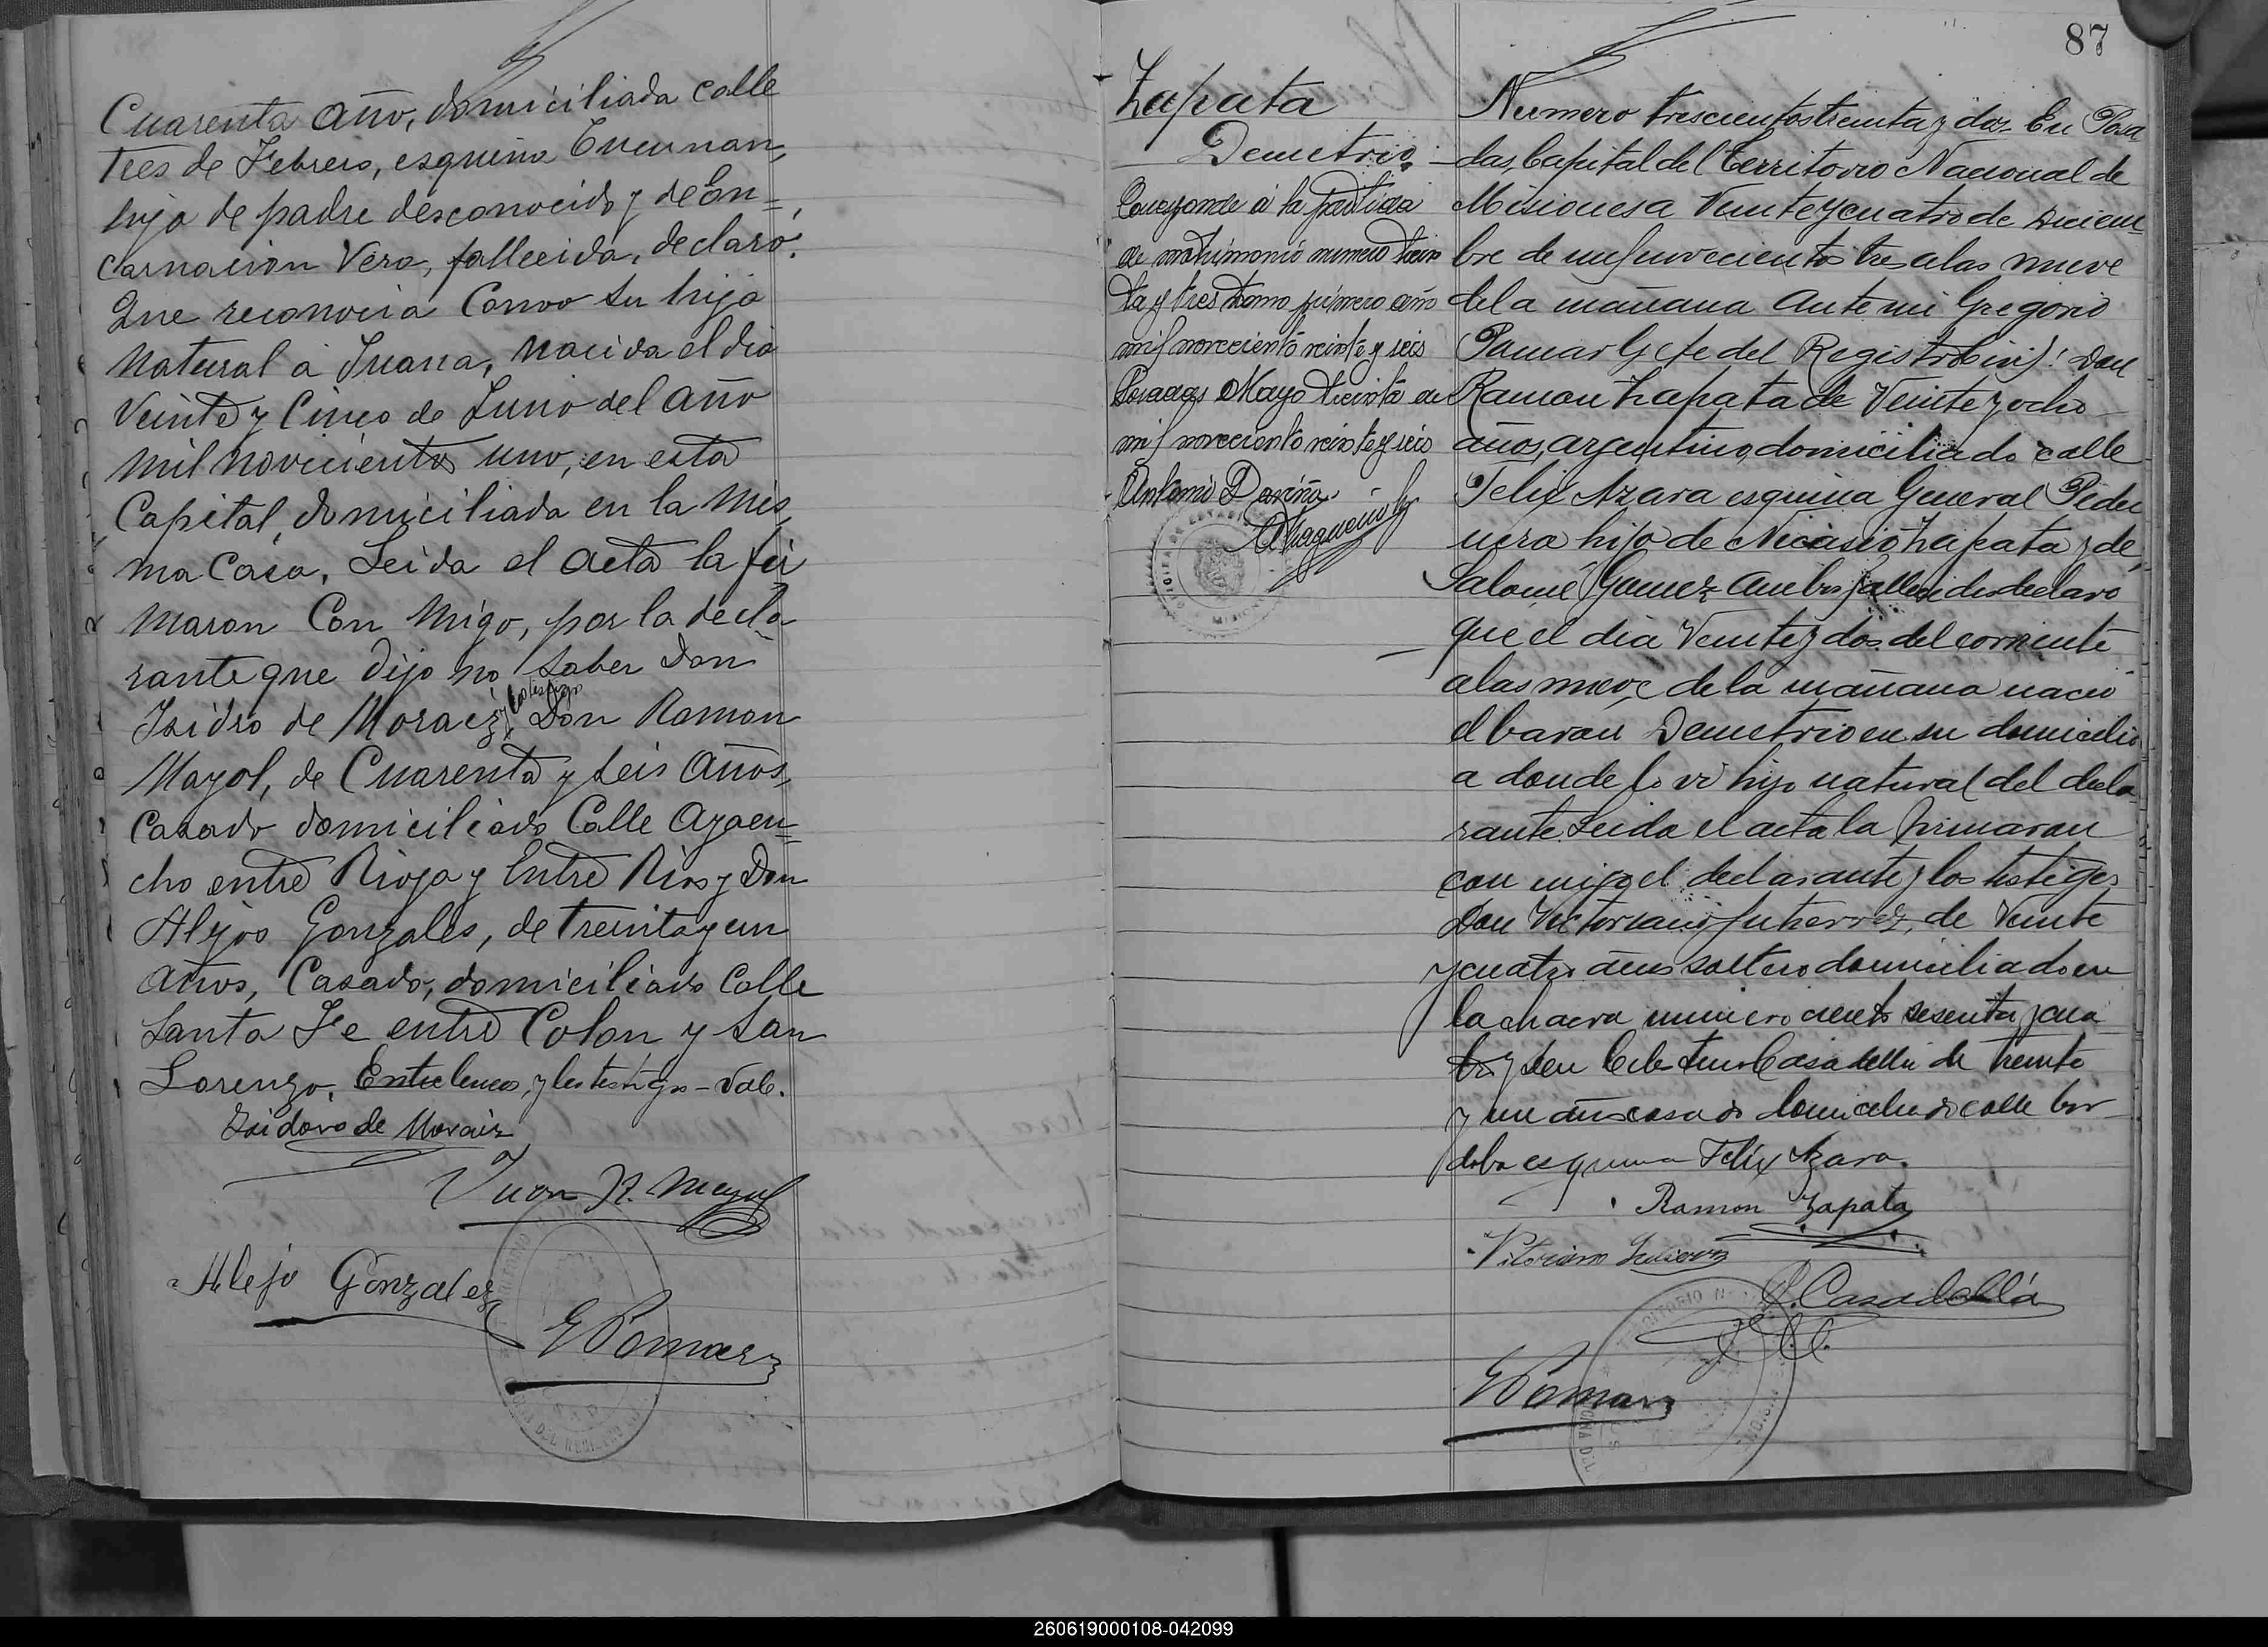 Cuarenta Año, domiciliada calle
tres de Febrero, esquina Tucuman,
hija de padre desconocido y de En=
carnacion Vera, fallecida, declaro:
Que reconocia Como su hija
natural a Juana, nacida el dia
Veinte y Cinco de Junio del año
mil novecientos uno, en esta
Capital, domiciliada en la mis
ma Casa, Leida el acta la fir
maron Con migo, por la decla
rante que dijo no saber Don
Isidro de Moraez, y los testigos Don Ramon
Mayol, de Cuarenta y seis años,
Casado domiciliado Calle Ayacu=
cho entre Rioja y Entre Rios y Don
Alejos Gonzales, de treinta y un
años, Casado, domiciliado Calle
Santa Fe entre Colon y San
Lorenzo. Entrelineas, y los testigos - Vale.
Isidoro de Moraiz
Juan R. Mayol
Alejo Gonzalez
GPomar
87
Zapata
Demetrio
Corresponde a la partida
de matrimonio numero trein
ta y tres tomo primero año
mil novecientos veinte y seis
Posadas Mayo treinta de
mil novecientos veinte y seis
Antonio
Numero trescientos treinta y dos. En Posa
das, Capital del Territorio Nacional de
Misiones a Veinte y cuatro de Diciem
bre de mil novecientos tres a las nueve
de la mañana Ante mi Gregorio
Pomar Gefe del Registro Civil: Don
Ramon Zapata de Veinte y ocho
años, argentino, domiciliado calle
Felix Azara esquina General Pider
nera hijo de Nicasio Zapata y de
Salomé Gomez ambos fallecidos declaro
que el dia Veinte y dos del corriente
a las nueve de la mañana nacio
el baron Demetrio en su domicilio
a donde lo vi hijo natural del decla
rante. Leida el acta la firmaron
con migo el declarante y los testigos
Don Victoriano Gutierrez, de Veinte
y cuatro años soltero domiciliado en
la chacra numero ciento sesenta y cua
tro y Don Celestino Casadellá de treinta
y un años casado domiciliado calle Cor
doba esquina Felix Azara.
Ramon Zapata
Vitoriano Gutierrez
C. Casadellá
GPomar
260619000108-042099